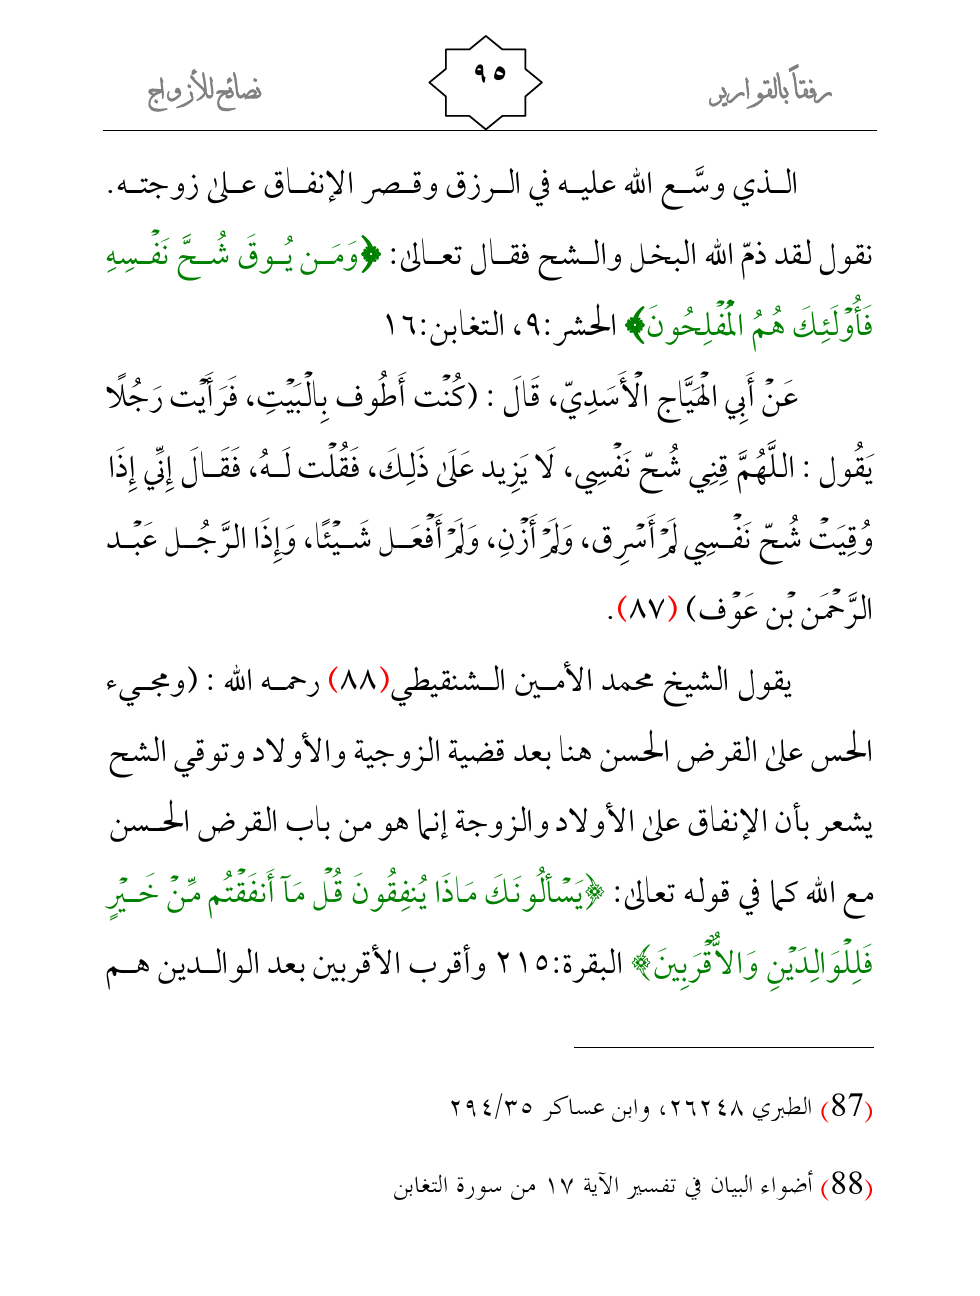 رفقاً بالقوارير
٩٥
نصائح للأزواج
الـذي وسَّـع الله عليـه في الـرزق وقـصر الإنفـاق عـلى زوجتـه.
نقول لقد ذمّ الله البخل والـشح فقـال تعـالى: ﴿وَمَـن يُـوقَ شُـحَّ نَفْـسِهِ
فَأُوْلَئِكَ هُمُ الْمُفْلِحُونَ﴾ الحشر:٩، التغابن:١٦
عَنْ أَبِي الْهَيَّاج الْأَسَدِيّ، قَالَ : (كُنْت أَطُوف بِالْبَيْتِ، فَرَأَيْت رَجُلًا
يَقُول : اللَّهُمَّ قِنِي شُحّ نَفْسِي، لَا يَزِيد عَلَى ذَلِكَ، فَقُلْت لَـهُ، فَقَـالَ إِنِّي إِذَا
وُقِيَتْ شُحّ نَفْـسِي لَمْ أَسْرِق، وَلَمْ أَزْنِ، وَلَمْ أَفْعَـل شَـيْئًا، وَإِذَا الرَّجُـل عَبْـد
الرَّحْمَن بْن عَوْف) (٨٧).
يقول الشيخ محمد الأمـين الـشنقيطي(٨٨) رحمـه الله : (ومجـيء
الحس على القرض الحسن هنا بعد قضية الزوجية والأولاد وتوقي الشح
يشعر بأن الإنفاق على الأولاد والزوجة إنما هو من باب القرض الحـسن
مع الله كما في قوله تعالى: ﴿يَسْأَلُونَكَ مَاذَا يُنفِقُونَ قُلْ مَآ أَنفَقْتُم مِّنْ خَـيْرٍ
فَلِلْوَالِدَيْنِ وَالأٌقْرَبِينَ﴾ البقرة:٢١٥ وأقرب الأقربين بعد الوالـدين هـم
(87) الطبري ٢٦٢٤٨، وابن عساكر ٢٩٤/٣٥
(88) أضواء البيان في تفسير الآية ١٧ من سورة التغابن